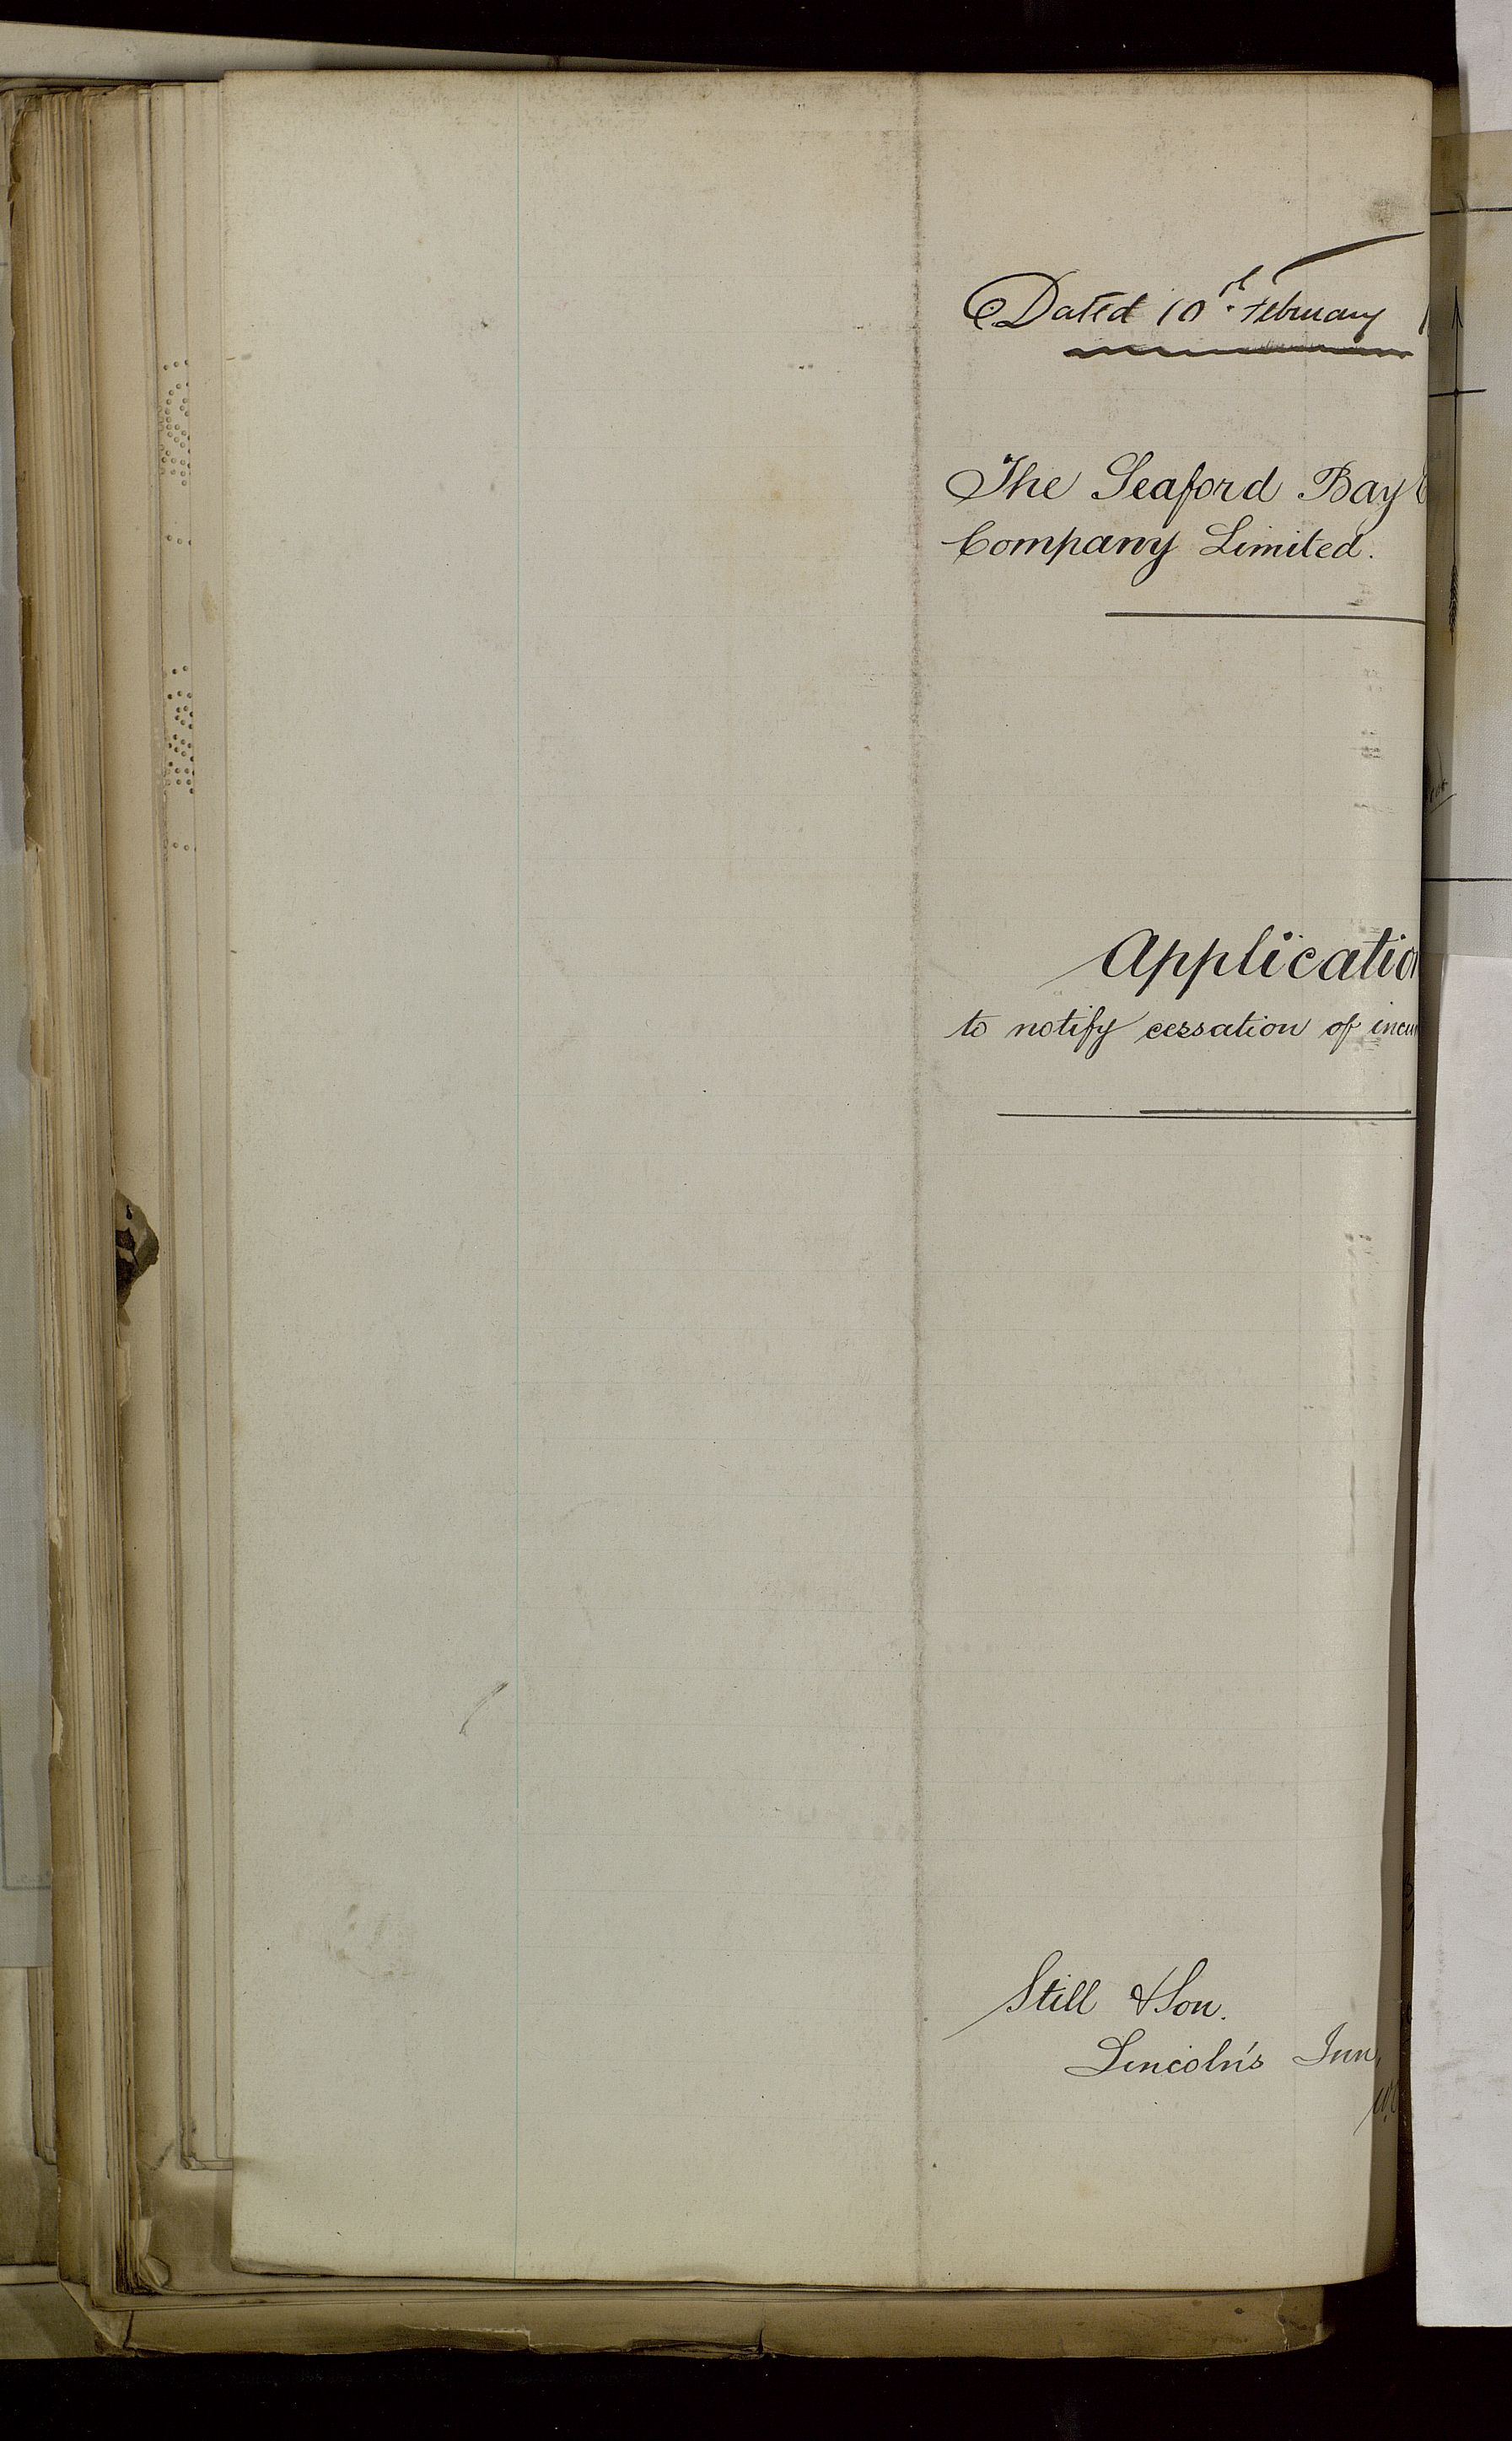 Dated 10th February
The Seaford Bay
Company Limited.
Application
to notify cessation of
Still & Son.
Lincoln's Inn,